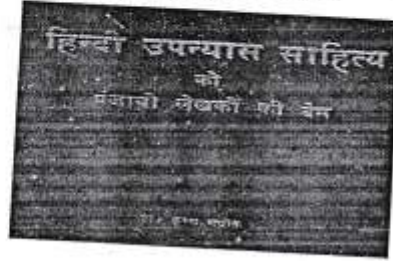 हिन्दी उपन्यास साहित्य
को
पंजाबी लेखकों की देन